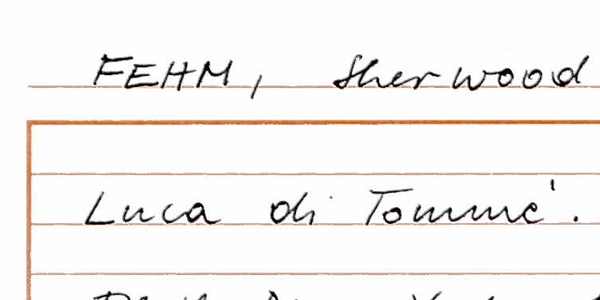 FEHM, Sherwood
Luca di Tommè.